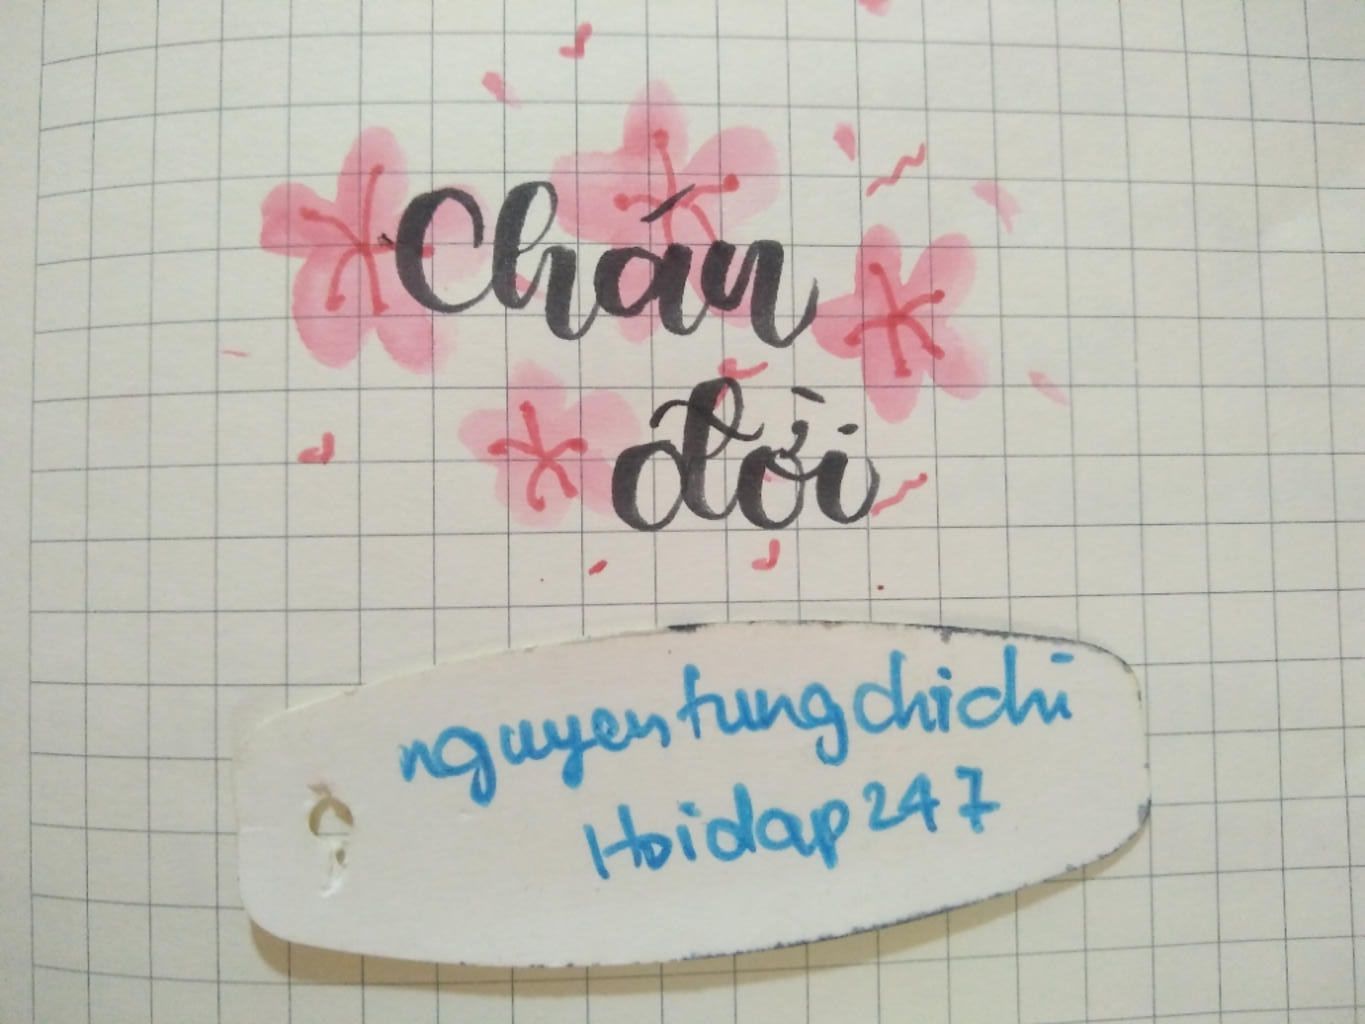 Chán
đời
nguyentungchichi
Hoidap247